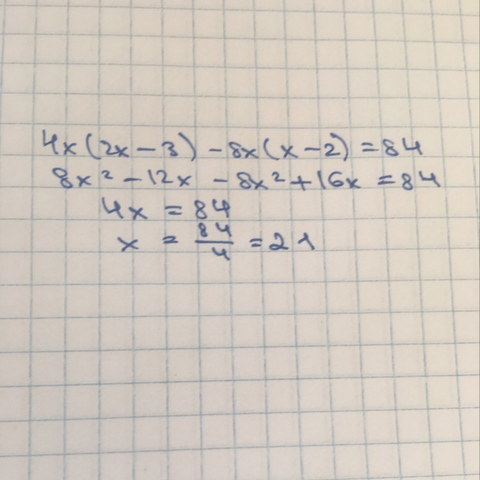 4x(2x-3)-8x(x-2)=84
8x²-12x-8x²+16x=84
4x=84
x=84/4=21